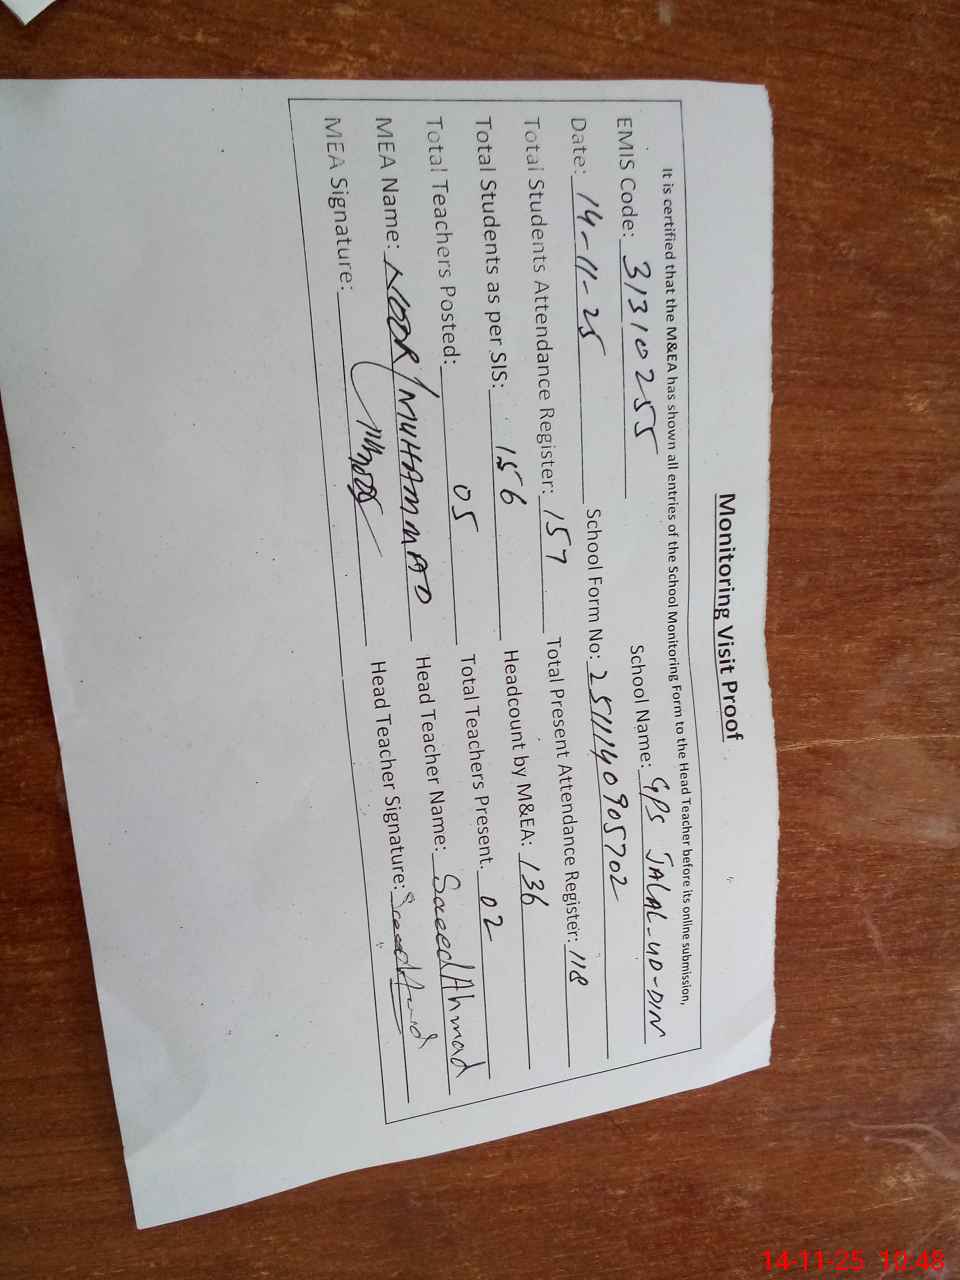 Monitoring Visit Proof
It is certified that the M&EA has shown all entries of the School Monitoring Form to the Head Teacher before its online submission,
EMIS Code: 31310255 School Name: GPS JALAL-UD-DIN
Date: 14-11-25 School Form No: 2511140905702
Total Students Attendance Register: 157 Total Present Attendance Register: 118
Total Students as per SIS: 156 Headcount by M&EA: 136
Total Teachers Posted: 05 Total Teachers Present. 02
MEA Name: NOOR MUHAMMAD Head Teacher Name: Saeed Ahmad
MEA Signature: Head Teacher Signature:
14-11-25 10:48